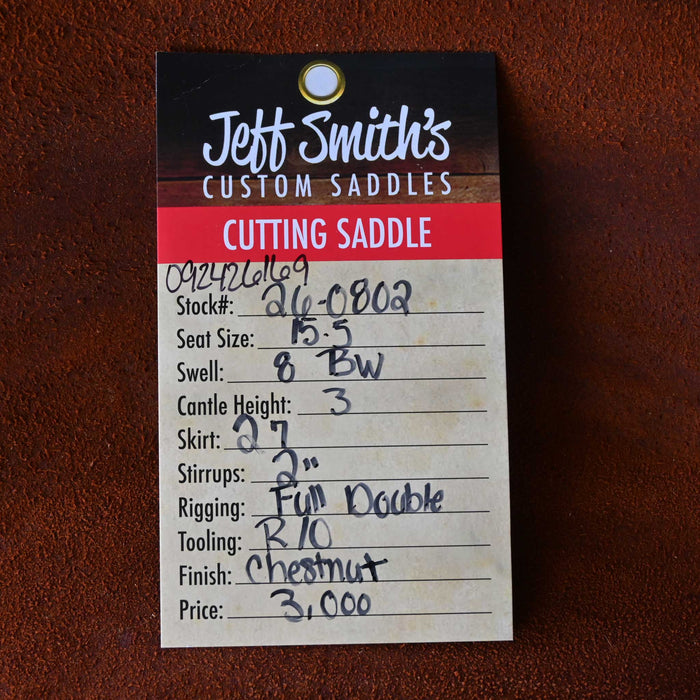 Jeff Smith's
CUSTOM SADDLES
CUTTING SADDLE
0924426169
Stock#: 26-0802
Seat Size: 15.5
Swell: 8 BW
Cantle Height: 3
Skirt: 27
Stirrups: 2"
Rigging: Full Double
Tooling: R10
Finish: Chestnut
Price: 3,000